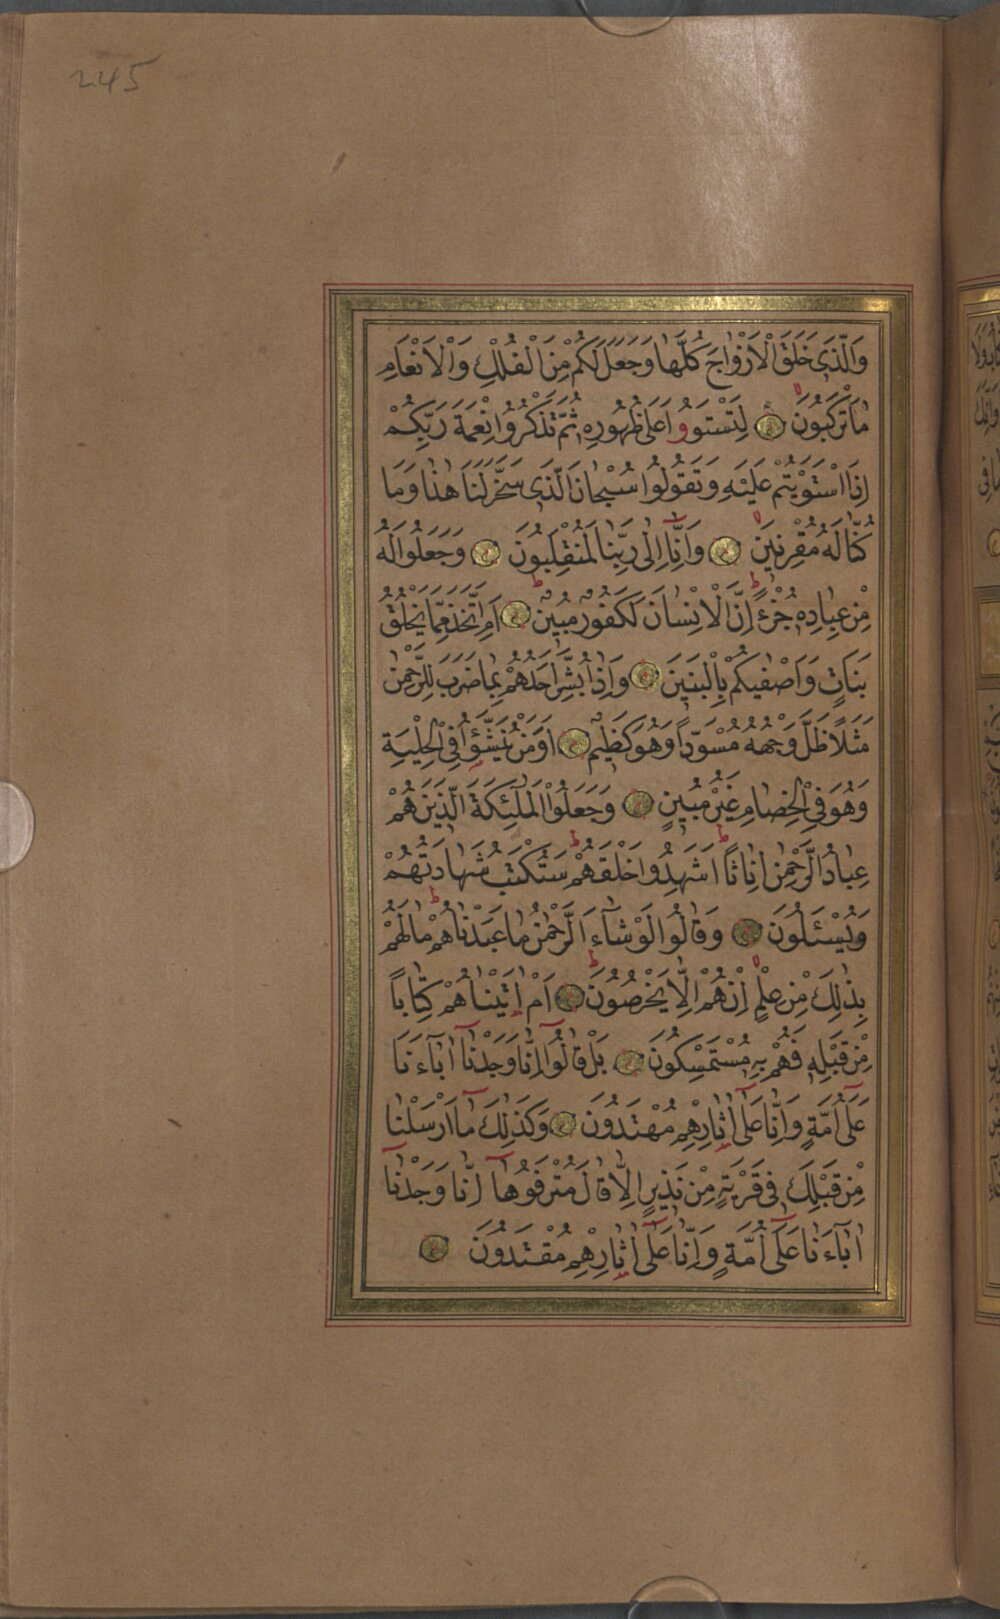 245
وَالَّذِي خَلَقَ الْاَزْوَاجَ كُلَّهَا وَجَعَلَ لَكُمْ مِنَ الْفُلْكِ وَالْاَنْعَامِ
مَا تَرْكَبُونَ لِتَسْتَوُوا عَلٰى ظُهُورِهِ ثُمَّ تَذْكُرُوا نِعْمَةَ رَبِّكُمْ
اِذَا اسْتَوَيْتُمْ عَلَيْهِ وَتَقُولُوا سُبْحَانَ الَّذِي سَخَّرَ لَنَا هٰذَا وَمَا
كُنَّا لَهُ مُقْرِنِينَ وَاِنَّا اِلٰى رَبِّنَا لَمُنْقَلِبُونَ وَجَعَلُوا لَهُ
مِنْ عِبَادِهِ جُزْءًا اِنَّ الْاِنْسَانَ لَكَفُورٌ مُبِينٌ اَمِ اتَّخَذَ مِمَّا يَخْلُقُ
بَنَاتٍ وَاَصْفٰيكُمْ بِالْبَنِينَ وَاِذَا بُشِّرَ اَحَدُهُمْ بِمَا ضَرَبَ لِلرَّحْمٰنِ
مَثَلًا ظَلَّ وَجْهُهُ مُسْوَدًّا وَهُوَ كَظِيمٌ اَوَمَنْ يُنَشَّؤُا فِي الْحِلْيَةِ
وَهُوَ فِي الْخِصَامِ غَيْرُ مُبِينٍ وَجَعَلُوا الْمَلٰٓئِكَةَ الَّذِينَ هُمْ
عِبَادُ الرَّحْمٰنِ اِنَاثًا اَشَهِدُوا خَلْقَهُمْ سَتُكْتَبُ شَهَادَتُهُمْ
وَيُسْـَٔلُونَ وَقَالُوا لَوْ شَآءَ الرَّحْمٰنُ مَا عَبَدْنَاهُمْ مَا لَهُمْ
بِذٰلِكَ مِنْ عِلْمٍ اِنْ هُمْ اِلَّا يَخْرُصُونَ اَمْ اٰتَيْنَاهُمْ كِتَابًا
مِنْ قَبْلِهِ فَهُمْ بِهِ مُسْتَمْسِكُونَ بَلْ قَالُوٓا اِنَّا وَجَدْنَآ اٰبَآءَنَا
عَلٰٓى اُمَّةٍ وَاِنَّا عَلٰٓى اٰثَارِهِمْ مُهْتَدُونَ وَكَذٰلِكَ مَآ اَرْسَلْنَا
مِنْ قَبْلِكَ فِي قَرْيَةٍ مِنْ نَذِيرٍ اِلَّا قَالَ مُتْرَفُوهَآ اِنَّا وَجَدْنَآ
اٰبَآءَنَا عَلٰٓى اُمَّةٍ وَاِنَّا عَلٰٓى اٰثَارِهِمْ مُقْتَدُونَ